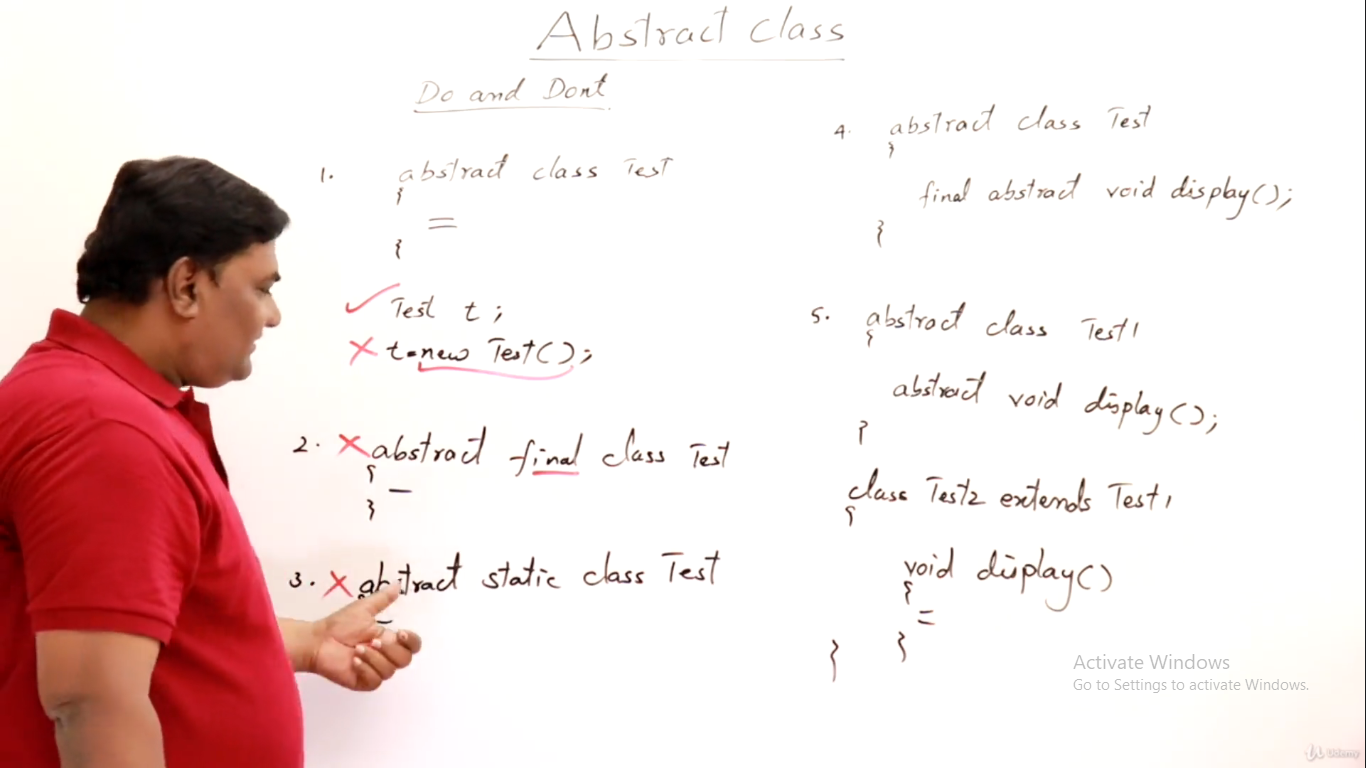 Abstract Class
Do and Dont
1. abstract class Test
{
=
}
Test t;
t=new Test();
2. abstract final class Test
{
—
}
3. abstract static class Test
4. abstract class Test
{
final abstract void display();
}
5. abstract class Test1
{
abstract void display();
}
class Test2 extends Test1
{
void display()
{
=
}
}
Activate Windows
Go to Settings to activate Windows.
Udemy